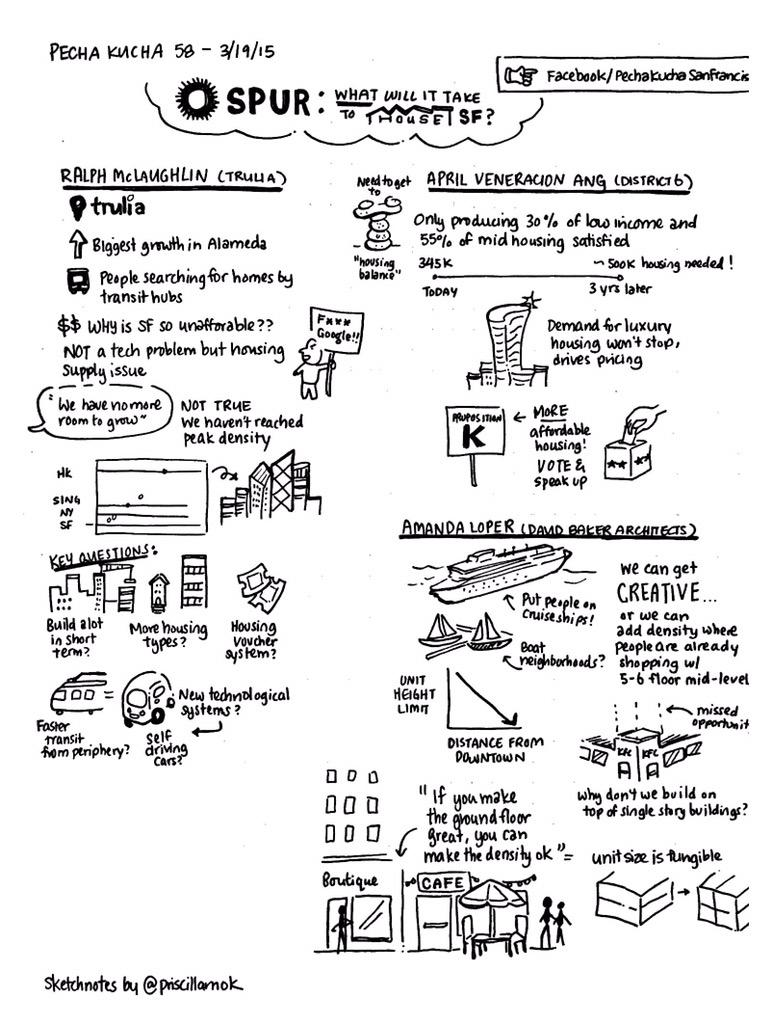 PECHA KUCHA 58 - 3/19/15
Facebook/PechaKuchaSanfrancis
SPUR: WHAT WILL IT TAKE
TO HOUSE SF?
RALPH McLAUGHLIN (TRULIA)
trulia
Biggest growth in Alameda
People searching for homes by
transit hubs
$$ WHY is SF so unafforable??
NOT a tech problem but housing
supply issue
F***
Google!!
"We have no more
room to grow"
NOT TRUE
We haven't reached
peak density
HK
SING
NY
SF
KEY QUESTIONS:
Build a lot
in short
term?
More housing
types?
Housing
Voucher
system?
=
Faster
transit
from periphery?
New technological
systems?
Self
driving
cars?
Need to get
to
"housing
balance"
APRIL VENERACION ANG (DISTRICT 6)
Only producing 30% of low income and
55% of mid housing satisfied
345K
~500K housing needed!
TODAY
3 yrs later
Demand for luxury
housing won't stop,
drives pricing
PROPOSITION
K
MORE
affordable
housing!
VOTE &
speak up
AMANDA LOPER (DAVID BAKER ARCHITECTS)
Put people on
cruise ships!
Boat
neighborhoods?
We can get
CREATIVE...
or we can
add density where
people are already
shopping w/
5-6 floor mid-level
UNIT
HEIGHT
LIMIT
DISTANCE FROM
DOWNTOWN
missed
opportunit
KFC KFC
why don't we build on
top of single story buildings?
"If you make
the ground floor
great, you can
make the density ok" =
unit size is fungible
Boutique
CAFE
Sketchnotes by @priscillamok